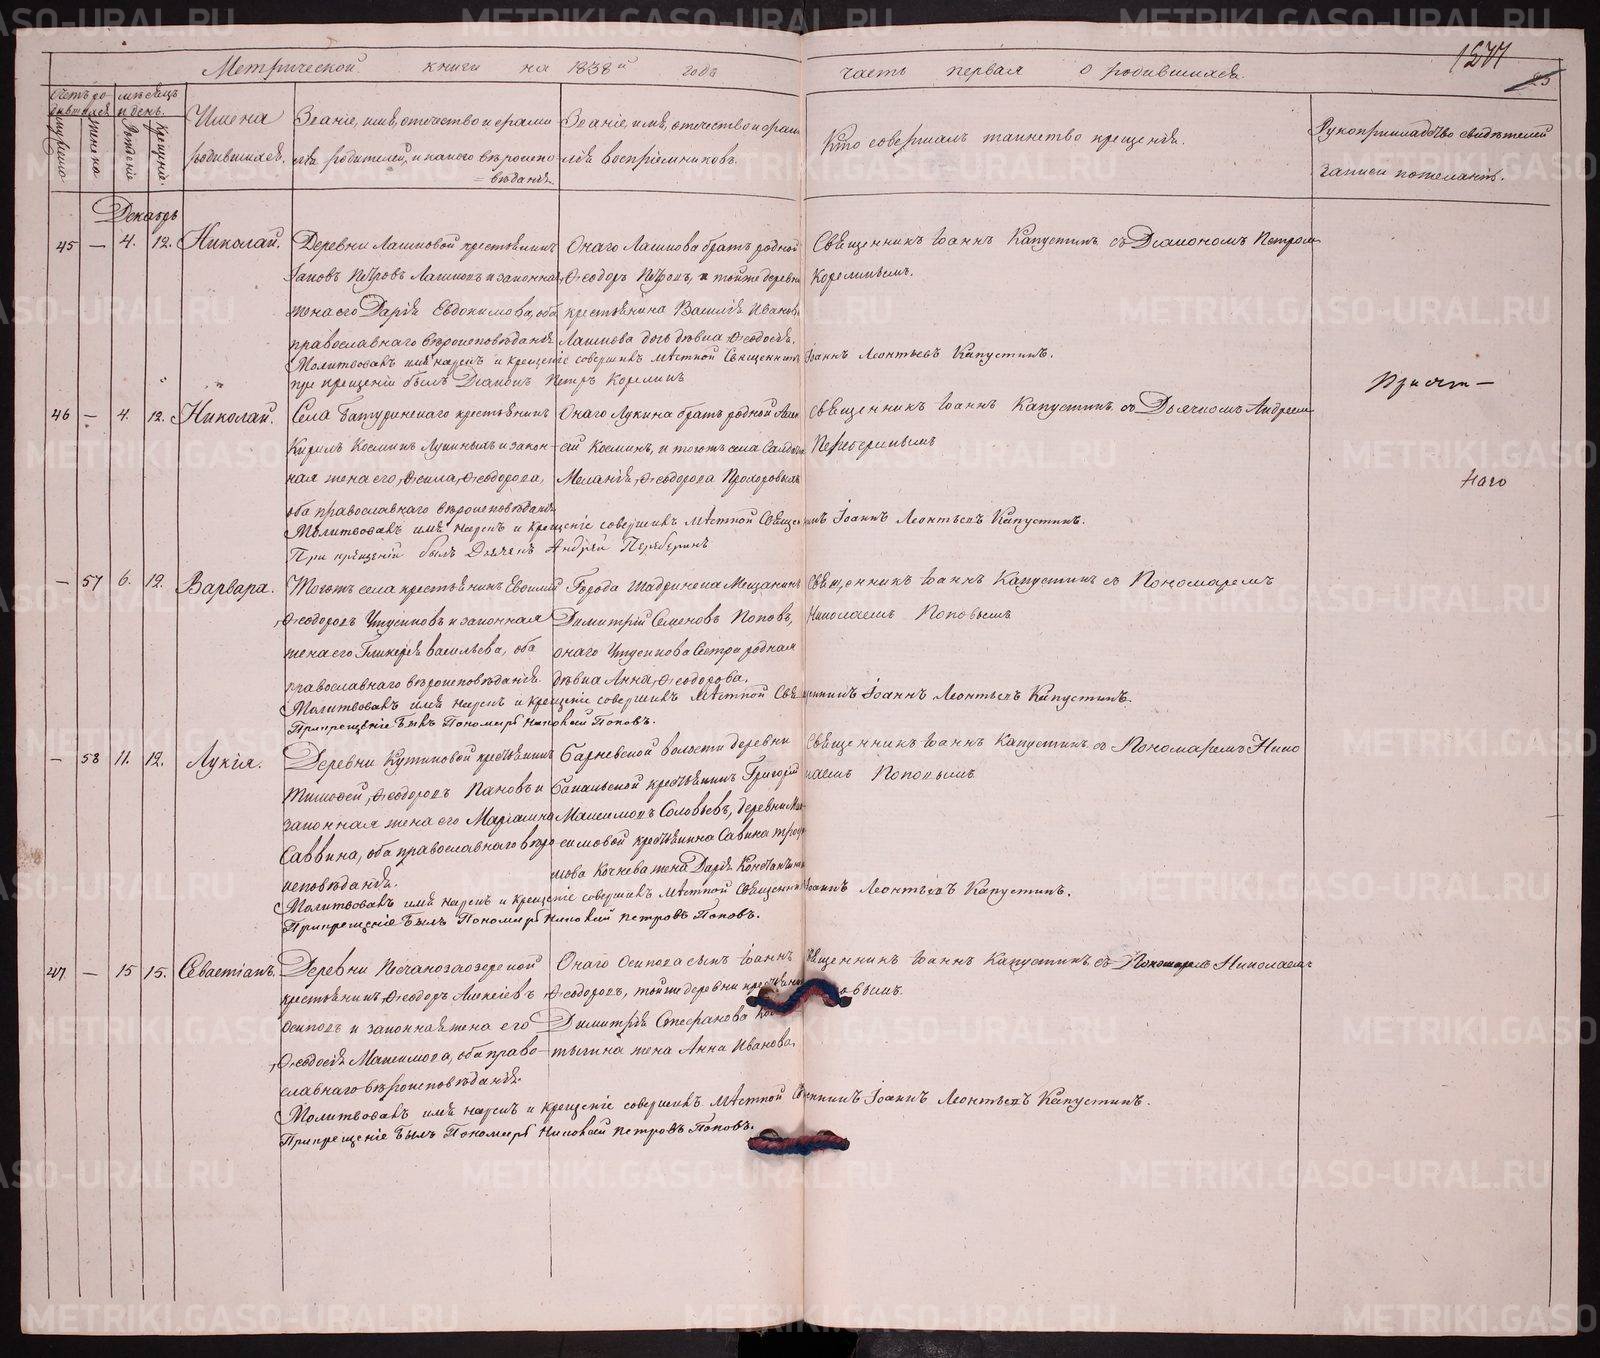 Метрической книги на 1838й годъ часть первая о родившихся.
1577
25
Счетъ ро-
дившихся
мѣсяцъ
и день.
мужеска
женска
Рожденіе
Крещеніе.
Имена
родившихся.
Званіе, имя, отчество и фами-
лія родителей, и какого вѣроиспо-
вѣданія.
Званіе, имя, отчество и фами-
лія воспріемниковъ.
Кто совершалъ таинство крещенія.
Рукоприкладство свидѣтелей
записи пожеланію.
Декабрь
45 — 4. 12. Николай. Деревни Лашковой крестьянинъ Онаго Лашкова братъ родной Священникъ Іоаннъ Капустинъ съ Діакономъ Петромъ
Іаковъ Петровъ Лашковъ и законная Ѳеодоръ Петровъ, и тойже деревни Корелинымъ.
жена его Дарія Евдокимова, оба крестьянина Василія Иванова
православнаго вѣроисповѣданія. Лашкова дочь дѣвица Ѳеодосія.
Молитвовалъ имя нарекъ и крещеніе совершилъ мѣстной Священникъ Іоаннъ Леонтьевъ Капустинъ.
при крещеніи былъ Діаконъ Петръ Корелинъ
46 — 4. 12. Николай. Села Батуринскаго крестьянинъ Онаго Лукина братъ родной Священникъ Іоаннъ Капустинъ съ Дьячкомъ Андреемъ
Кирилъ Косминъ Лукиныхъ и закон- Косминъ, и тогожъ села
ная жена его, Ѳеодорова, Меланія, Ѳеодорова Прохоровыхъ
оба православнаго вѣроисповѣданія
Молитвовалъ имя нарекъ и крещеніе совершилъ мѣстной Священникъ Іоаннъ Леонтьевъ Капустинъ.
При крещеніи былъ Дьячекъ Андрей
— 57 6. 12. Варвара. Тогожъ села крестьянинъ Евѳимій Города Шадринска Мещанинъ Священникъ Іоаннъ Капустинъ съ Пономаремъ
Ѳеодоровъ и законная Димитрій Семеновъ Поповъ, Николаемъ Поповымъ
жена его Гликерія Васильева, оба онаго Сестра родная
православнаго вѣроисповѣданія. дѣвица Анна, Ѳеодорова.
Молитвовалъ имя нарекъ и крещеніе совершилъ мѣстной Священникъ Іоаннъ Леонтьевъ Капустинъ.
При крещеніе былъ Пономарь Николай Поповъ.
— 58 11. 12. Лукія. Деревни крестьянинъ Барневской волости деревни Священникъ Іоаннъ Капустинъ съ Пономаремъ Нико-
Тимоѳей, Ѳеодоровъ Пановъ и крестьянинъ Григорій лаемъ Поповымъ
законная жена его Маріамна Максимовъ Соловьевъ, деревни Мак-
Саввина, оба православнаго вѣро- симовой крестьянина Савина
исповѣданія. Кочнева жена Дарія
Молитвовалъ имя нарекъ и крещеніе совершилъ мѣстной Священникъ Іоаннъ Леонтьевъ Капустинъ.
При крещеніе былъ Пономарь Николай Петровъ Поповъ.
47 — 15 15. Севастіанъ. Деревни Песчанозаозерской Онаго Осипова сынъ Іоаннъ Священникъ Іоаннъ Капустинъ съ Пономаремъ Николаемъ
крестьянинъ, Ѳеодоръ Алексіевъ Ѳеодоровъ, тойже деревни
Осиповъ и законная жена его Димитрія Стефанова
Ѳеодосія Максимова, оба право- жена Анна Иванова.
славнаго вѣроисповѣданія.
Молитвовалъ имя нарекъ и крещеніе совершилъ мѣстной Іоаннъ Леонтьевъ Капустинъ.
При крещеніе былъ Пономарь Николай Петровъ Поповъ.
METRIKI.GASO-URAL.RU